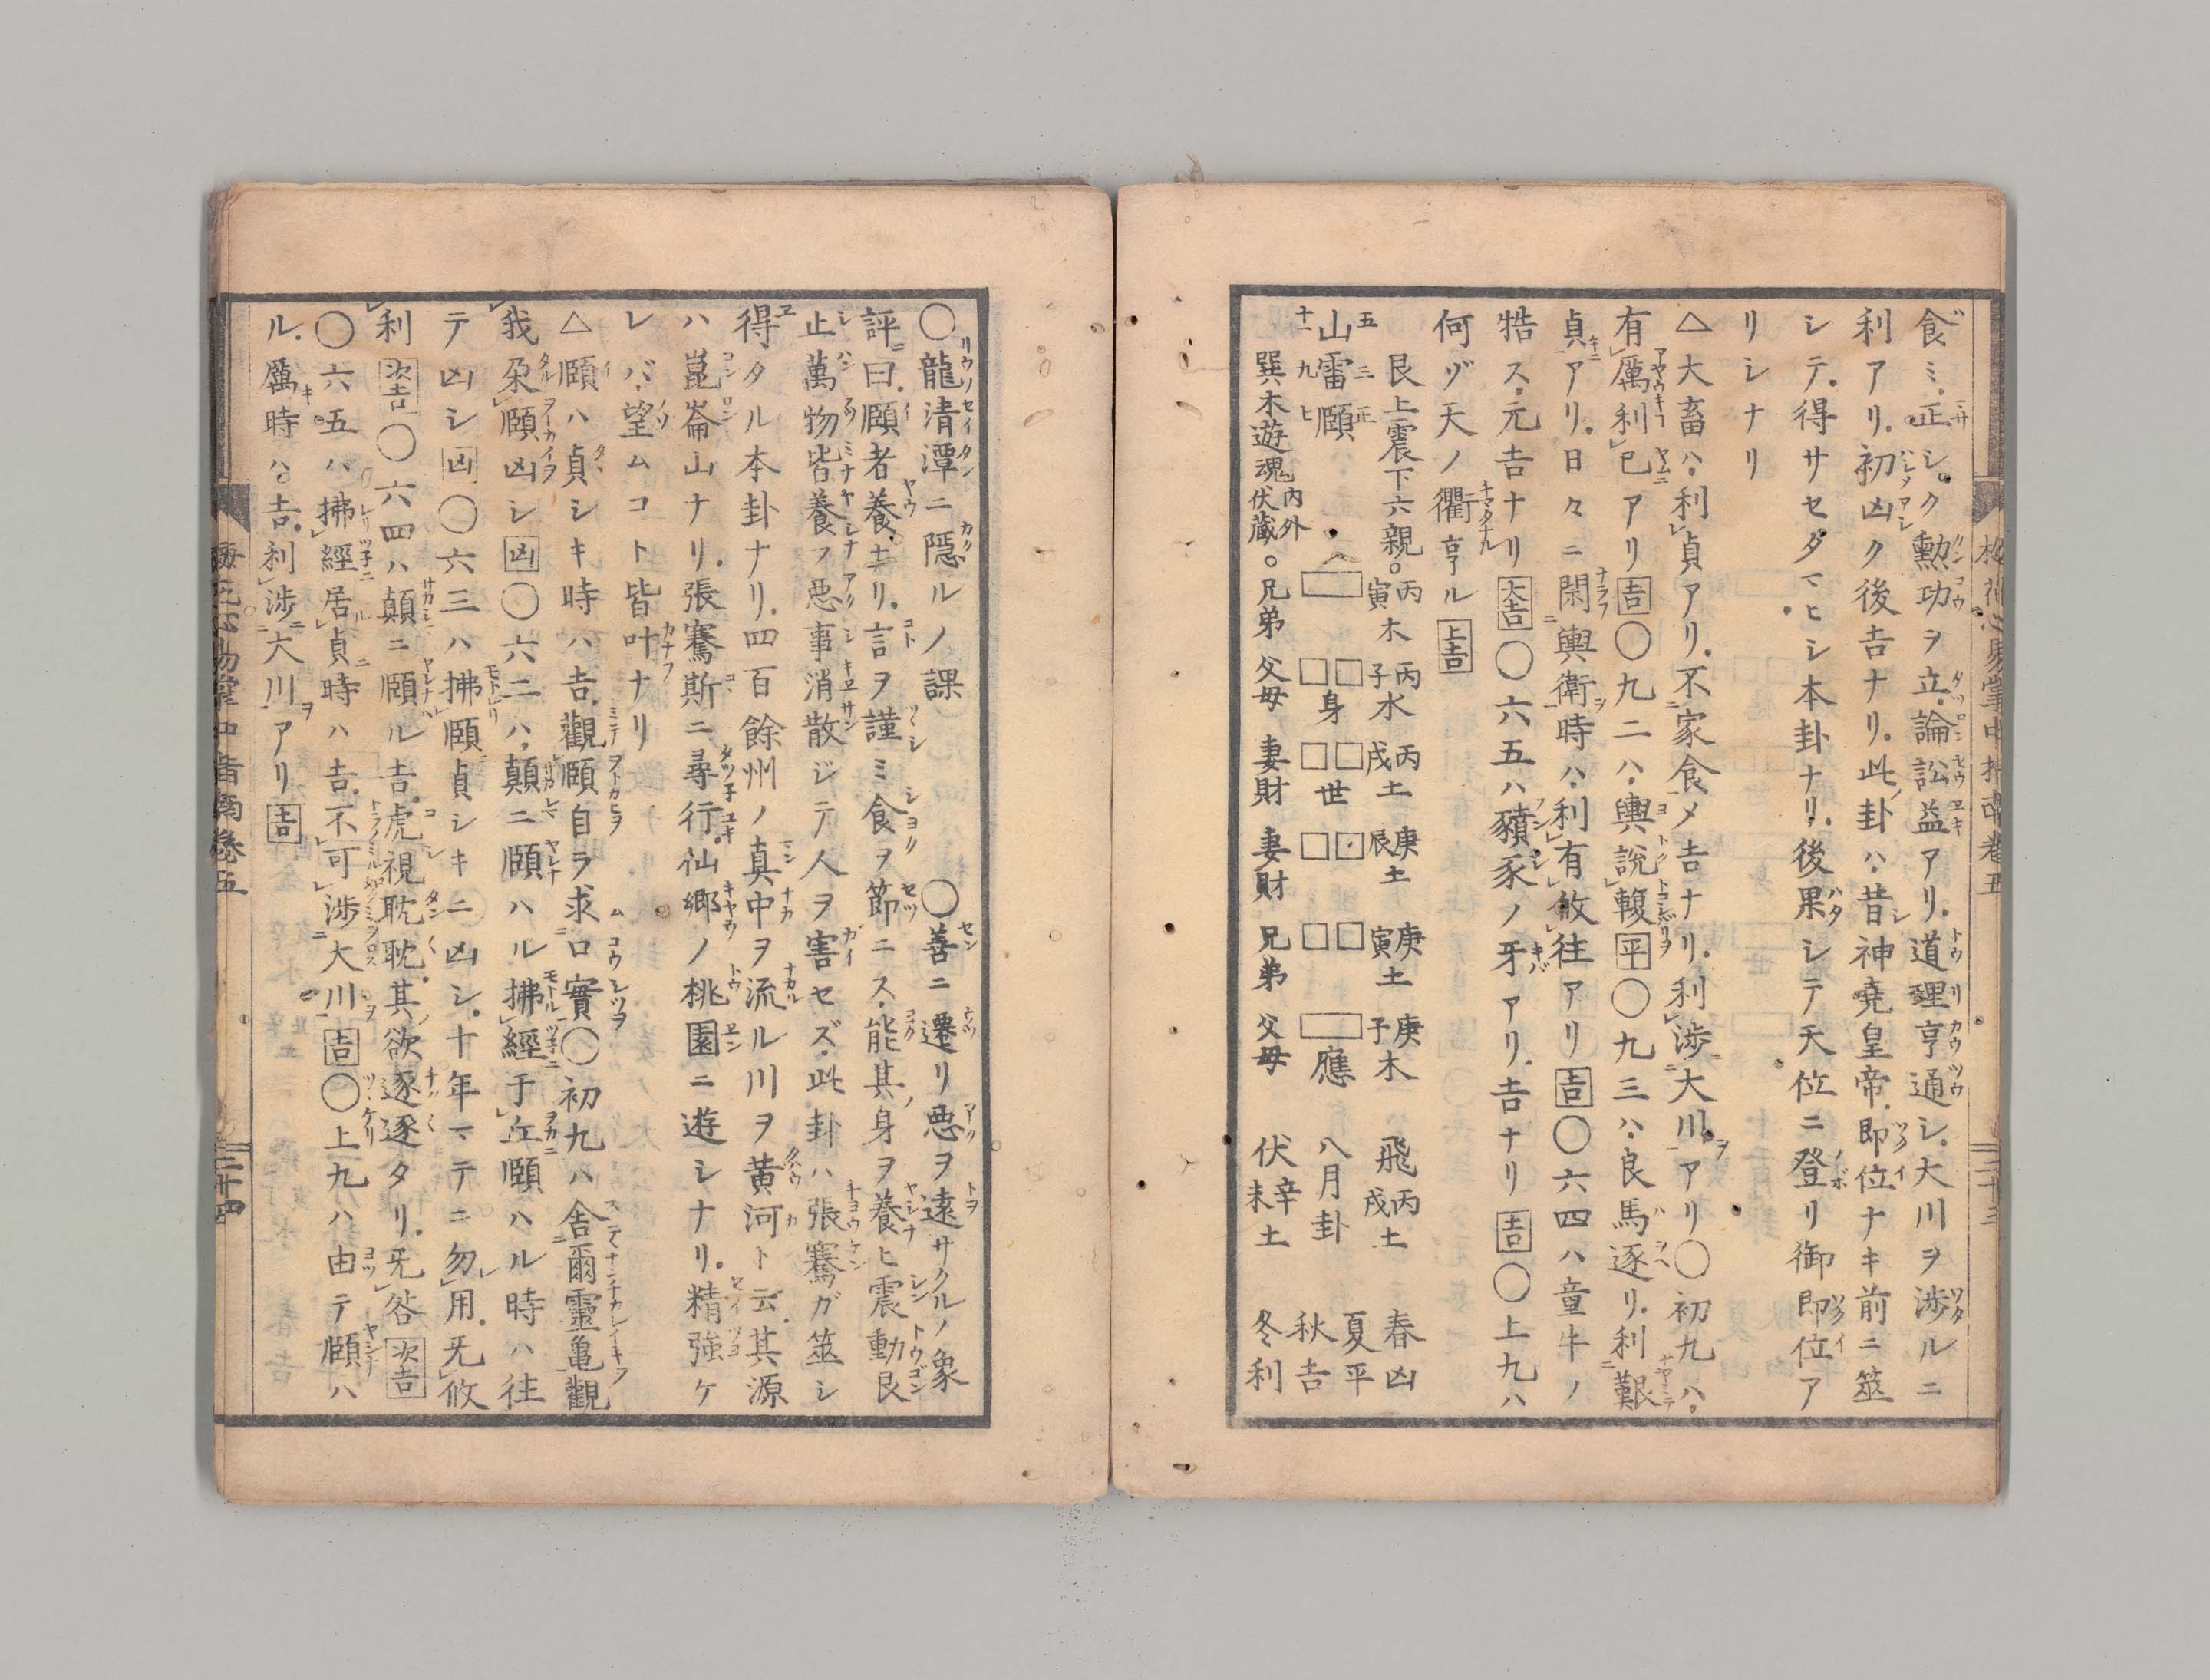 食ミ正シク勲功ヲ立論訟益アリ道理亨通シ大川ヲ渉ルニ
利アリ初凶ク後吉ナリ此卦ハ昔神堯皇帝即位ナキ前ニ筮
シテ得サセタマヒシ本卦ナリ後果シテ天位ニ登リ御即位ア
リシナリ
△大畜ハ利貞アリ不家食メ吉ナリ利渉大川アリ〇初九ハ
有厲利已アリ吉〇九二ハ輿説輹平〇九三ハ良馬逐リ利艱
貞アリ日々ニ閑輿衛時ハ利有攸往アリ吉〇六四ハ童牛ノ
牿ス元吉ナリ大吉〇六五ハ豶豕ノ牙アリ吉ナリ吉〇上九ハ
何ゾ天ノ衢亨ル上吉
艮上震下六親。丙寅木 丙子水 丙戌土 庚辰土 庚寅土 庚子木 飛丙戌土 春凶
五三正山雷頤十一九七 身 世 應 八月卦 夏平 秋吉
巽木遊魂内外伏蔵。兄弟 父母 妻財 妻財 兄弟 父母 伏辛未土 冬利
二十三
〇龍清潭ニ隠ルノ課 〇善ニ遷リ悪ヲ遠サクルノ象
評曰頤者養ナリ言ヲ謹ミ食ヲ節ニス能其身ヲ養ヒ震動艮
止萬物皆養フ悪事消散ジテ人ヲ害セズ此卦ハ張騫ガ筮シ
得タル本卦ナリ四百餘州ノ真中ヲ流ル川ヲ黄河ト云其源
ハ崑崙山ナリ張騫斯ニ尋行仙郷ノ桃園ニ遊シナリ精強ケ
レバ望ムコト皆叶ナリ
△頤ハ貞シキ時ハ吉觀頤自ラ求口實〇初九ハ舎爾靈亀觀
我朶頤凶シ凶〇六二ハ顛ニ頤ハル拂經于丘頤ハル時ハ往
テ凶シ凶〇六三ハ拂頤貞シキニ凶シ十年マテニ勿用旡攸
利次吉〇六四ハ顛ニ頤ル吉虎視耽耽其欲逐逐タリ旡咎次吉
〇六五ハ拂經居貞時ハ吉不可渉大川吉〇上九ハ由テ頤ハ
ル厲時ハ吉利渉大川アリ吉
卷五 二十四